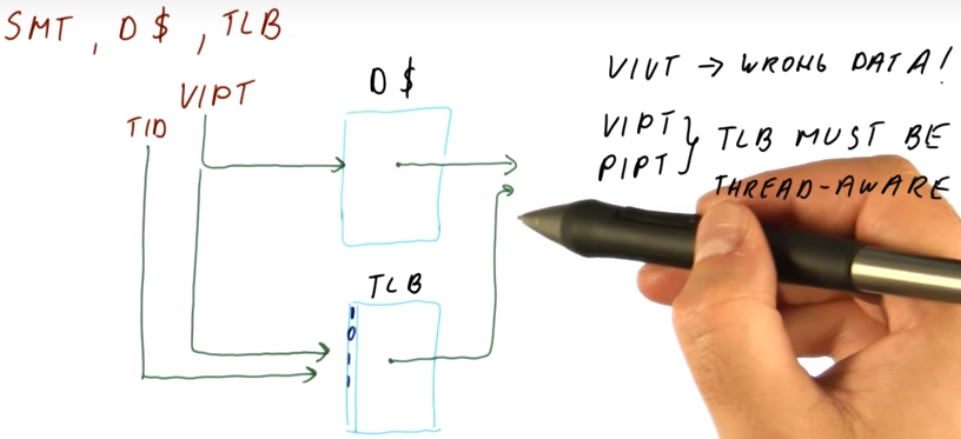 SMT, D$, TLB
VIPT
TID
D$
TLB
1
0
1
1
VIVT → WRONG DATA!
VIPT
PIPT } TLB MUST BE
THREAD-AWARE